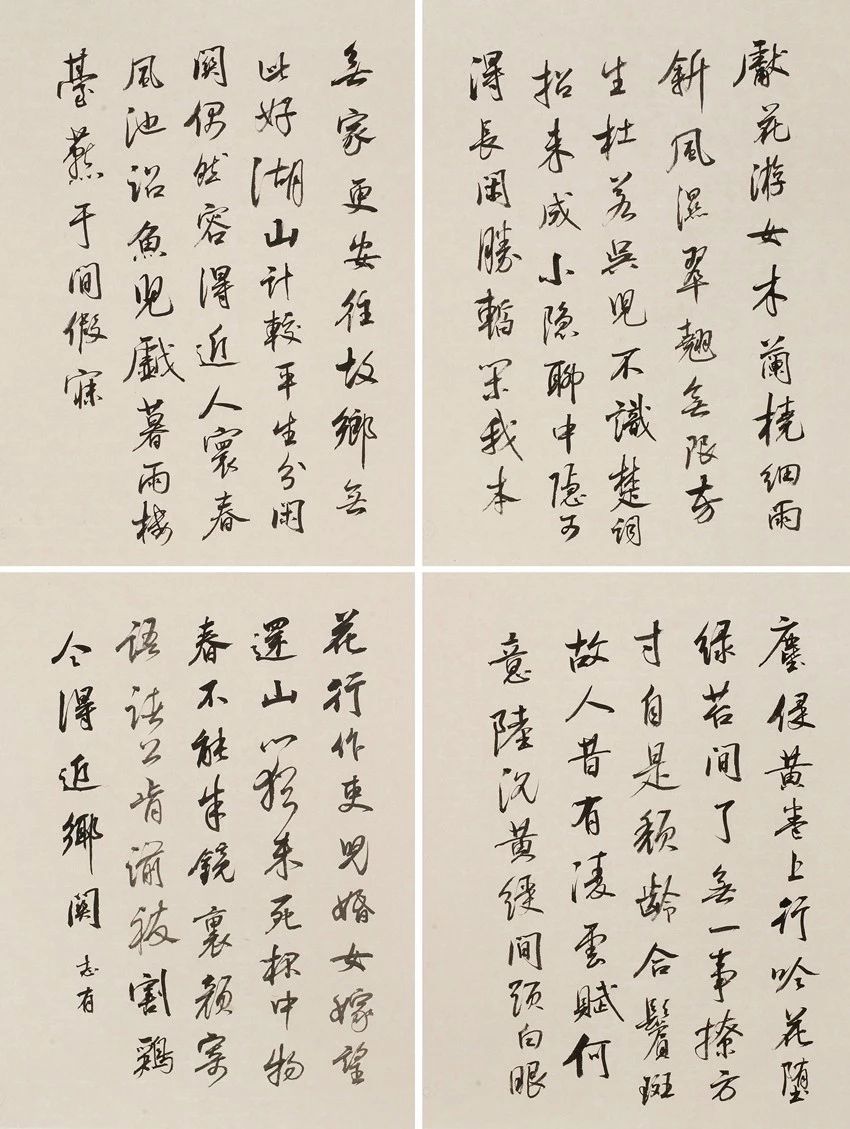 獻花游女木蘭橈細雨
斜風濕翠翹無限芳
生杜若吳兒不識楚詞
招未成小隱聊中隱可
得長閑勝暫閑我本
無家更安往故鄉無
此好湖山計較平生分閑
關偶然容得近人寰春
風池沼魚兒戲暮雨樓
臺燕子閒假寐
塵侵黃卷上行吟花墮
綠苔間了無一事撩方
寸自是頹齡合鬢斑
故人昔有凌雲賦何
意陸沉黃綬間頭白眼
花行作吏兒婚女嫁望
還山心猶未死杯中物
春不能朱鏡裏顏寄
語諸公肯湔祓割雞
今得近鄉關 志有